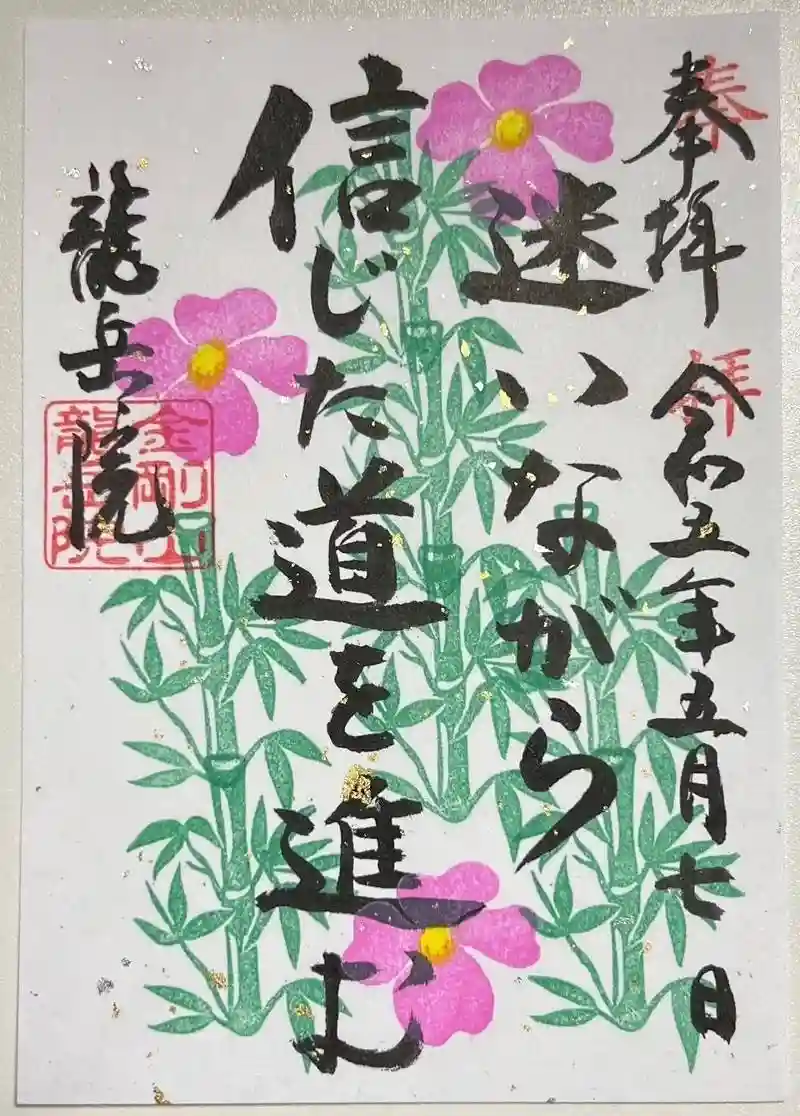 奉拝 令和五年五月七日
奉拝
迷いながら
信じた道を進む
龍岳院
金剛山
龍岳院